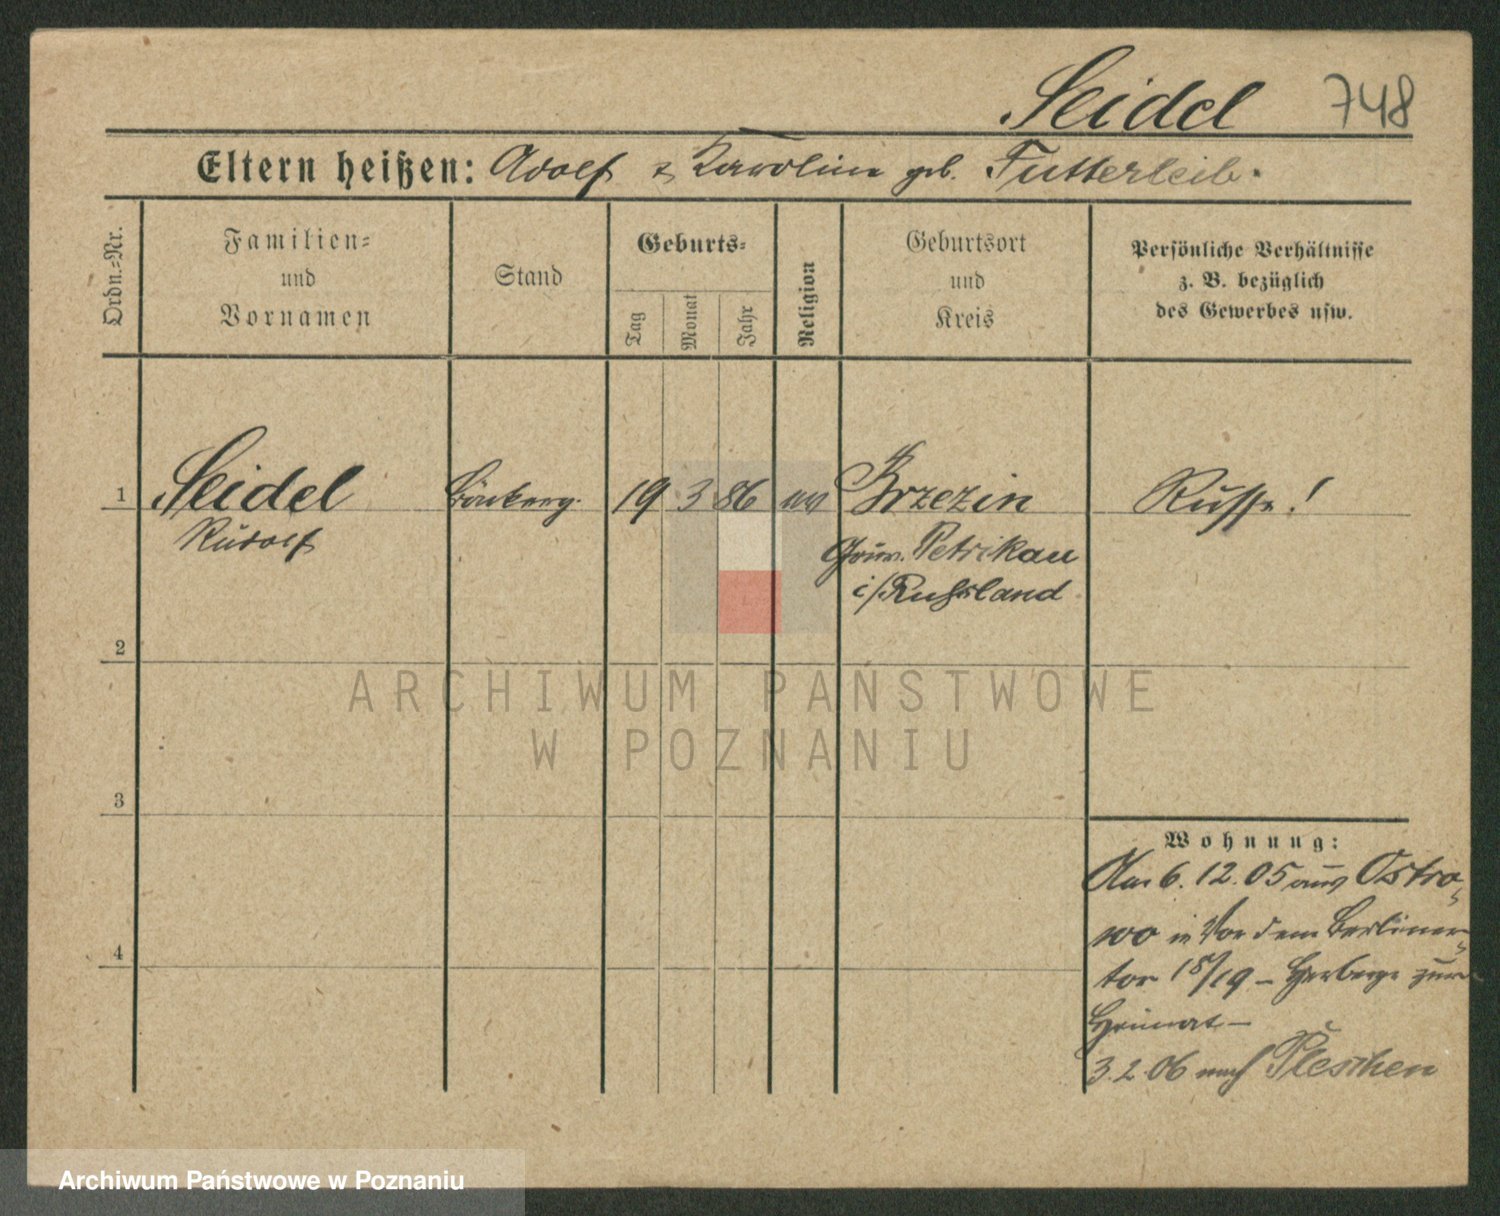 Seidel 748
Eltern heißen: Adolf & Karoline geb. Futterleib.
Ordn.-Nr.
Familien-
und
Vornamen
Stand
Geburts-
Tag
Monat
Jahr
Religion
Geburtsort
und
Kreis
Persönliche Verhältnisse
z. B. bezüglich
des Gewerbes usw.
1 Seidel 19 3 86 ev Brzezin Russe!
Rudolf
Gouv. Petrikau
i/Russland
2
ARCHIWUM PAŃSTWOWE
W POZNANIU
3
Wohnung:
6. 12. 05 aus Ostro-
wo in Vor dem Berliner-
4
tor 18/19 – Herberge zur
Heimat –
3. 2. 06 nach Pleschen
Archiwum Państwowe w Poznaniu